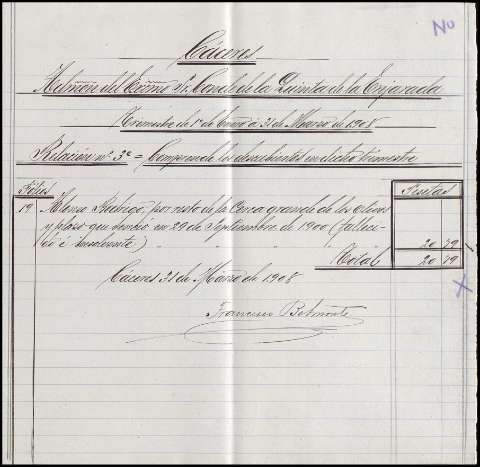 No
Cáceres
Admon del Excmo Sr. Conde de la Quinta de la Enjarada
Trimestre de 1º de Enero á 31 de Marzo de 1908
Relación nº 3º = Comprende los descubiertos en dicho trimestre
Folios
Pesetas
19 Alonso Rodrigo, por resto de la Cerca grande de los Olivos
y plazo que venció en 29 de Septiembre de 1900 (falleci-
do é insolvente) " " " " 20 79
Total 20 79
Cáceres 31 de Marzo de 1908
Francisco Belmonte
X